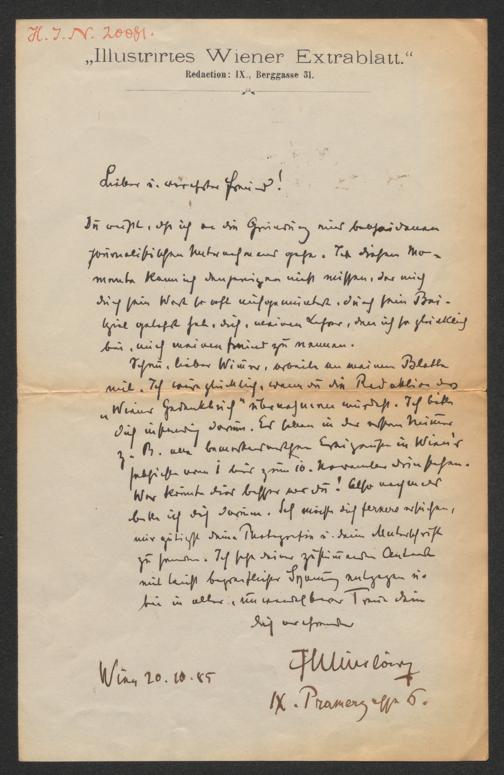 H. I. N. 20081.
„Illustrirtes Wiener Extrablatt.“
Redaction: IX., Berggasse 31.
Lieber u. verehrter Freund!
Du weißt, daß ich an die Gründung eines bescheidenen
journalistischen Unternehmens gehe. In diesem Mo-
mente kann ich denjenigen nicht missen, der mich
durch sein Wort so oft aufgemuntert, durch sein Bei-
spiel gelehrt hat, dich, meinen Lehrer, den ich so glücklich
bin, auch meinen Freund zu nennen.
lieber arbeite an meinem Blatte
mit. Ich wäre glücklich, wenn du die Redaktion des
„Wiener Gedenkbuch“ übernehmen würdest. Ich bitte
dich inständig darum. Es sollen in der ersten Nummer
z. B. alle bemerkenswerthen Ereignisse in Wien's
vom 1 bis zum 10. November drin stehen.
Wer könnte dies besser wie du! Also nochmals
bitte ich dich darum. Ich möchte dich ferner ersuchen,
mir gütigst deine Photografie u. dein
zu senden. Ich sehe deiner zustimmenden Antwort
mit leicht begreiflicher Spannung entgegen u.
bin in alter, unwandelbarer Treue dein
dich verehrender
Wien 20. 10. 85
IX. Pramergasse 6.